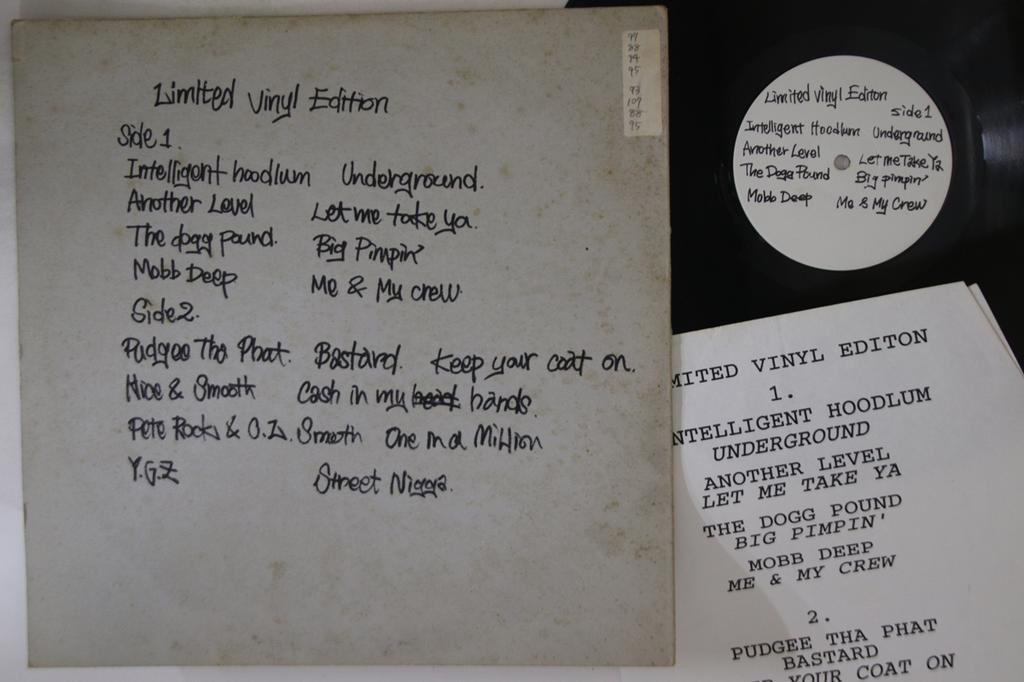 Limited Vinyl Edition
Side 1.
Intelligent hoodlum Underground.
Another Level Let me take ya.
The dogg pound. Big Pimpin'
Mobb Deep Me & My crew.
Side 2.
Pudgee Tha Phat. Bastard. Keep your coat on.
Nice & Smooth Cash in my hands.
Pete Rock & C.L. Smooth One in a Million
Y.G.Z Street Nigga.
77
88
94
95
93
107
88
95
Limited Vinyl Edition
Side 1
Intelligent Hoodlum Underground
Another Level Let me Take Ya
The Dogg Pound Big pimpin'
Mobb Deep Me & My Crew
MITED VINYL EDITON
1.
NTELLIGENT HOODLUM
UNDERGROUND
ANOTHER LEVEL
LET ME TAKE YA
THE DOGG POUND
BIG PIMPIN'
MOBB DEEP
ME & MY CREW
2.
PUDGEE THA PHAT
BASTARD
YOUR COAT ON